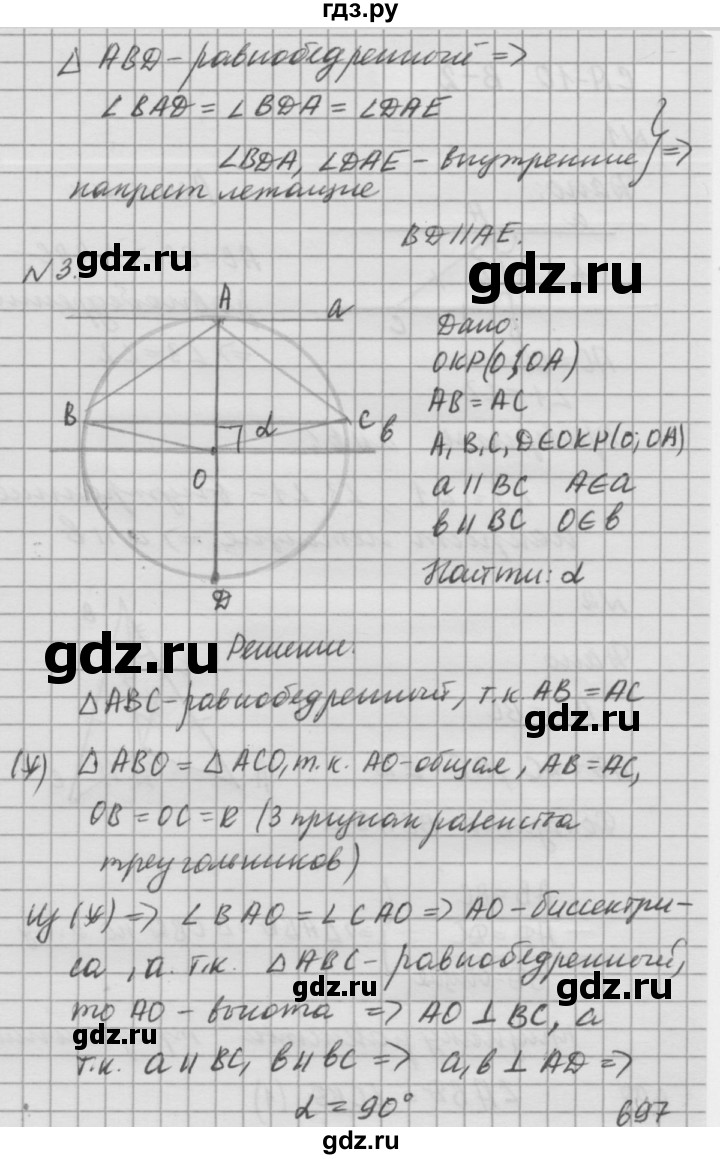 гдз.ру
△ ABD - равнобедренный =>
∠BAD = ∠BDA = ∠DAE
∠BDA, ∠DAE - внутренние } =>
накрест лежащие
BD || AE.
gdz.ru
gdz.ru
N3.
A
a
B
C
в
α
O
D
Дано:
ОКР(O; OA)
AB = AC
A, B, C, D ∈ ОКР(O; OA)
a || BC A ∈ a
в || BC O ∈ в
Найти: α
gdz.ru
Решение.
△ABC - равнобедренный, т.к. AB = AC
gdz.ru
(*) △ ABO = △ ACO, т.к. AO - общая, AB = AC,
OB = OC = R (3 признак равенства
треугольников)
Из (*) => ∠BAO = ∠CAO => AO - биссектри-
са, а т.к. △ABC - равнобедренный,
gdz.ru
gdz.ru
то AO - высота => AO ⊥ BC, а
т.к. a || BC, в || BC => a, в ⊥ AD =>
α = 90°
697
gdz.ru